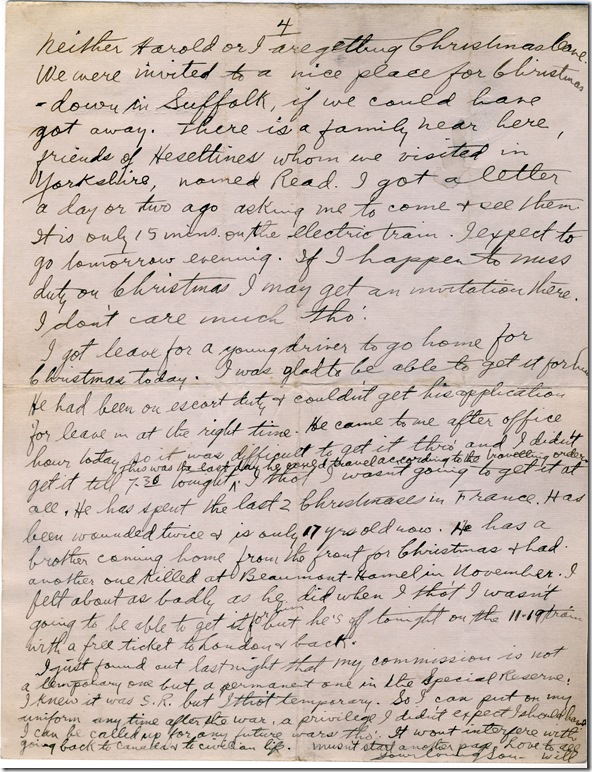 4
Neither Harold or I are getting Christmas leave.
We were invited to a nice place for Christmas
- down in Suffolk, if we could have
got away. There is a family near here,
friends of Heseltines whom we visited in
Yorkshire, named Read. I got a letter
a day or two ago asking me to come & see them.
It is only 15 mins. on the electric train. I expect to
go tomorrow evening. If I happen to miss
duty on Christmas I may get an invitation there.
I don't care much tho'.
I got leave for a young driver to go home for
Christmas today. I was glad to be able to get it for him
He had been on escort duty & couldn't get his application
for leave in at the right time. He came to me after office
hour today so it was difficult to get it thro' and I didn't
this was the last day he could travel according to the travelling orders
get it till 7.30 tonight ^ I tho't I wasn't going to get it at
all. He has spent the last 2 Christmases in France. Has
been wounded twice & is only 17 yrs old now. He has a
brother coming home from the front for Christmas & had
another one killed at Beaumont-Hamel in November. I
felt about as badly as he did when I tho't I wasn't
going to be able to get it for him but he's off tonight on the 11-19 train
with a free ticket to London & back.
I just found out last night that my commission is not
a temporary one but a permanent one in the Special Reserve.
I knew it was S.R. but I tho't temporary. So I can put on my
uniform any time after the war, a privilege I didn't expect I should have
I can be called up for any future wars tho'. It wont interfere with
going back to Canada & to civilian life. Mustn't start another page. Love to all
Your loving Son - Will